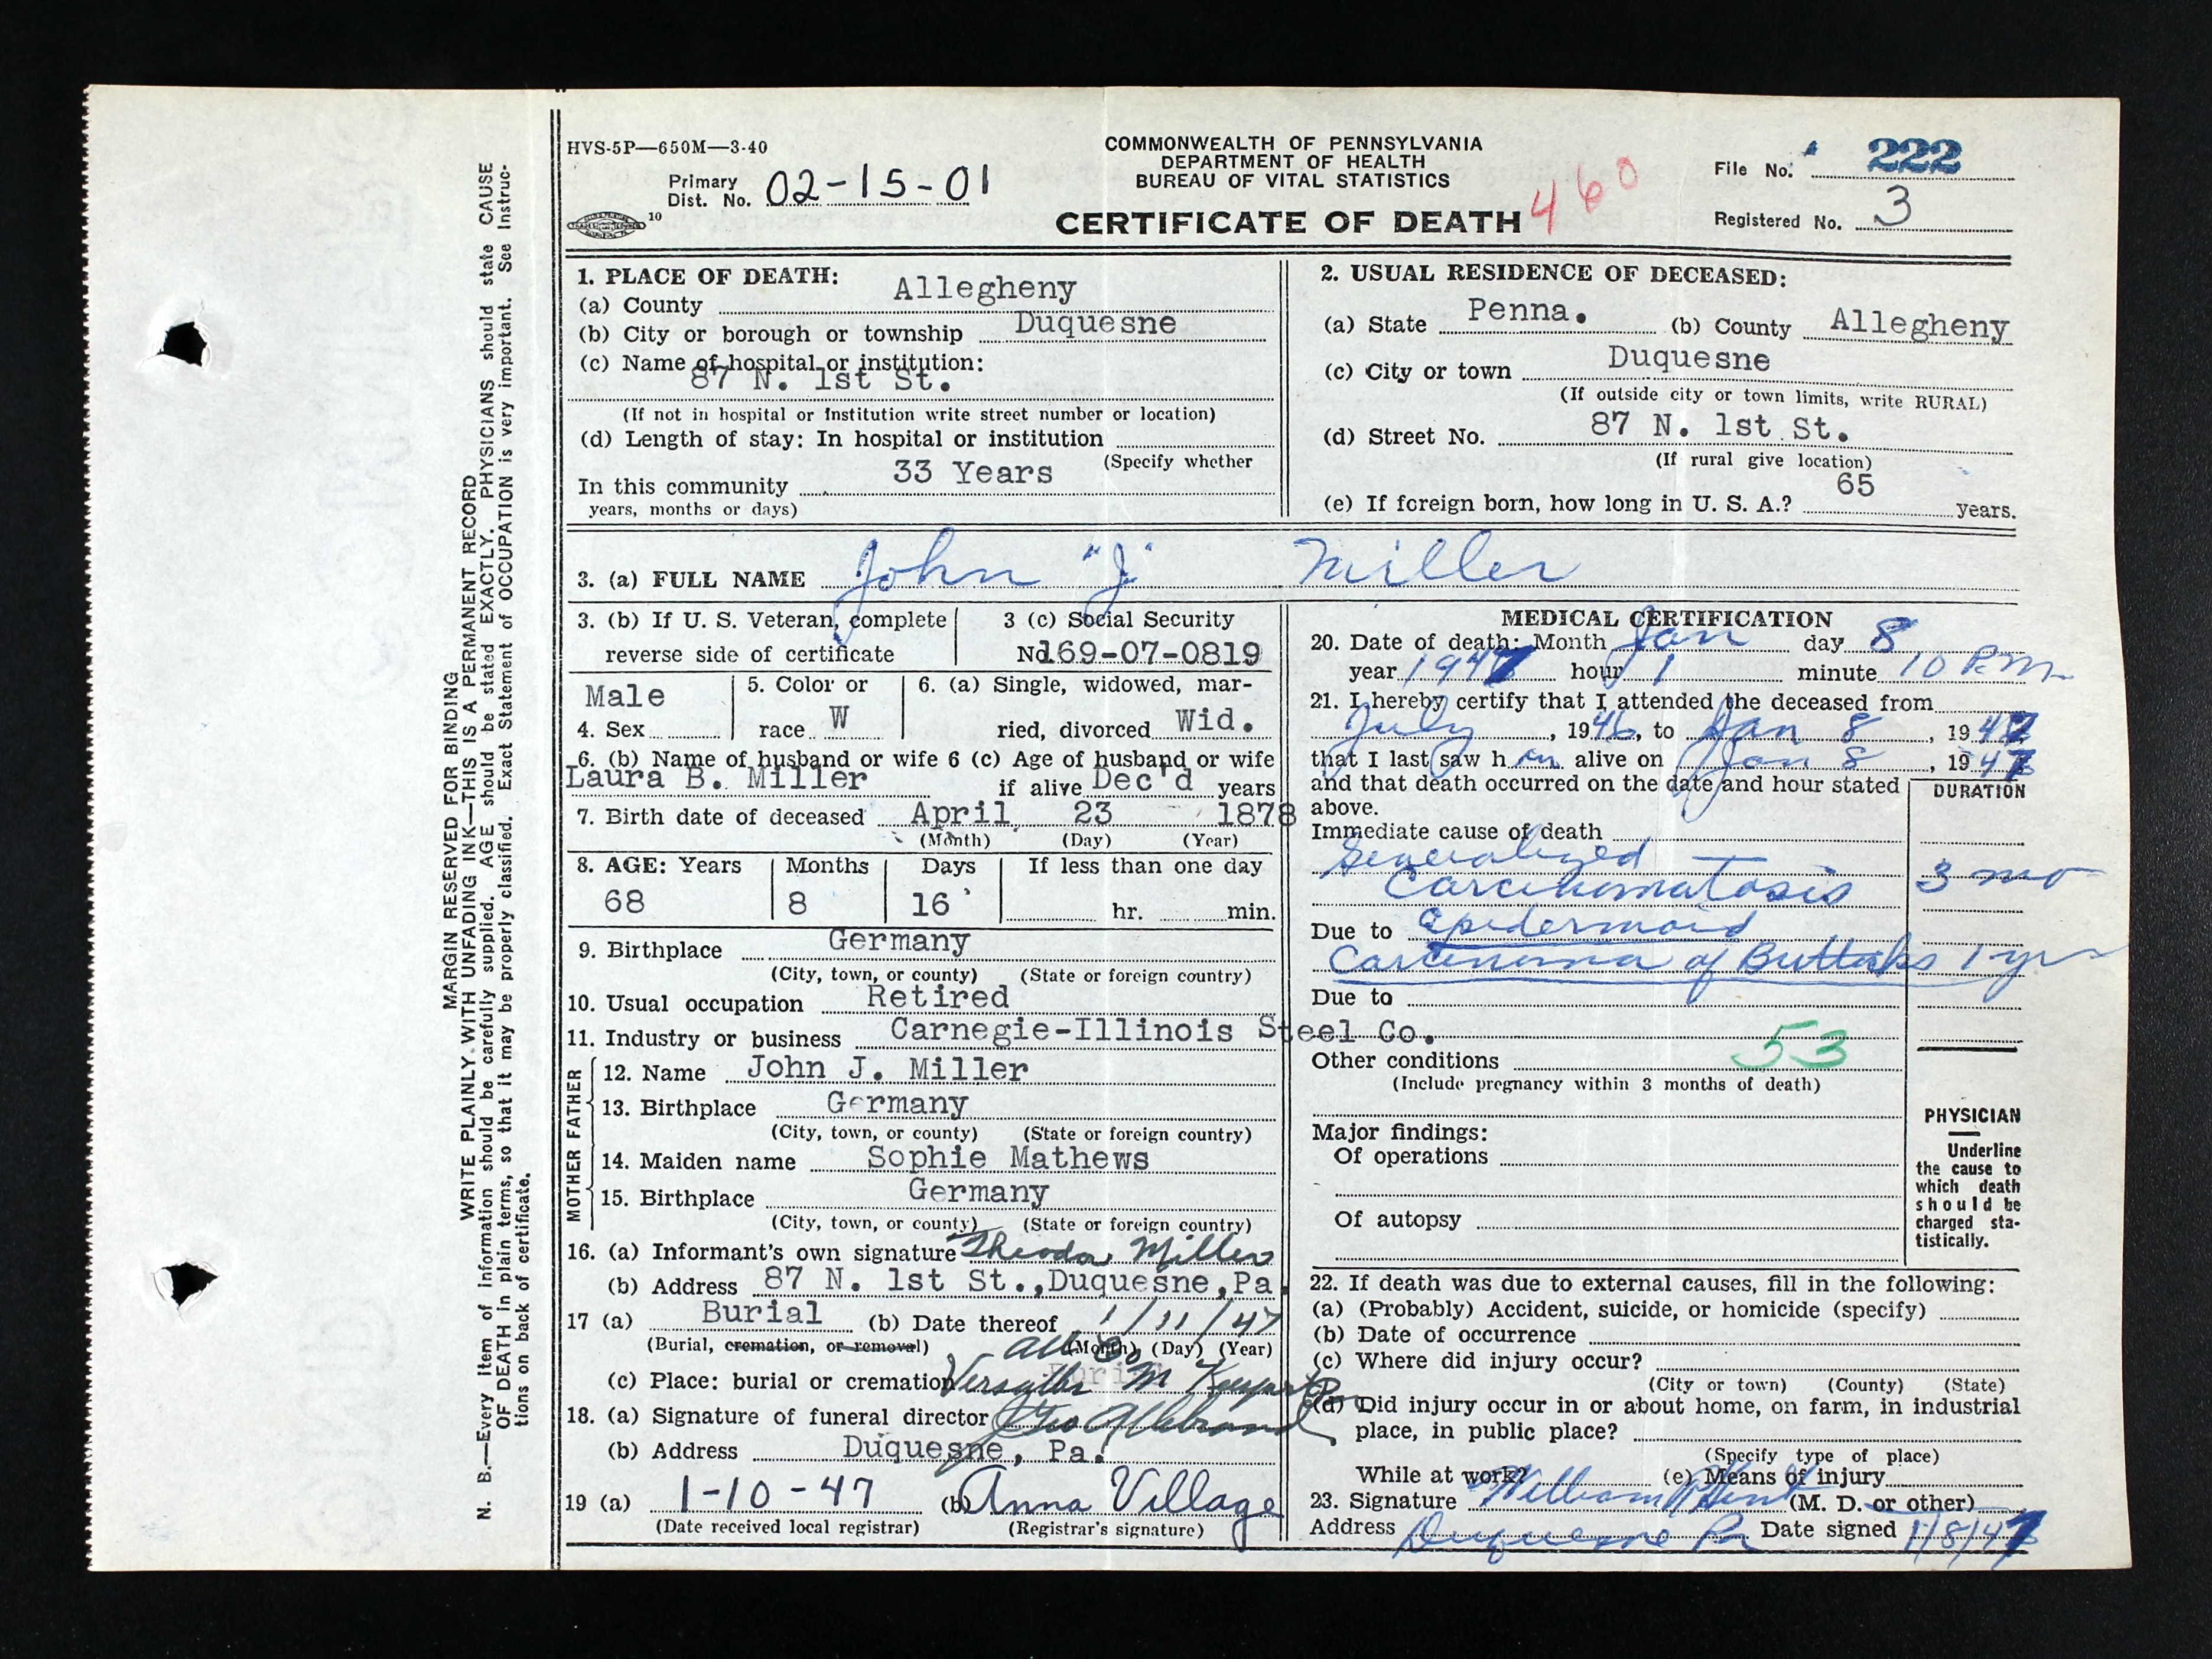 HVS-5P—650M—3-40
COMMONWEALTH OF PENNSYLVANIA
DEPARTMENT OF HEALTH
BUREAU OF VITAL STATISTICS
Primary
Dist. No. 02-15-01
10
CERTIFICATE OF DEATH
460
File No. 222
Registered No. 3
1. PLACE OF DEATH:
(a) County Allegheny
(b) City or borough or township Duquesne
(c) Name of hospital or institution:
87 N. 1st St.
(If not in hospital or institution write street number or location)
(d) Length of stay: In hospital or institution
(Specify whether
In this community 33 Years
years, months or days)
2. USUAL RESIDENCE OF DECEASED:
(a) State Penna. (b) County Allegheny
(c) City or town Duquesne
(If outside city or town limits, write RURAL)
(d) Street No. 87 N. 1st St.
(If rural give location)
(e) If foreign born, how long in U. S. A.? 65 years.
3. (a) FULL NAME John "J" Miller
3. (b) If U. S. Veteran, complete
reverse side of certificate
3 (c) Social Security
No. 169-07-0819
4. Sex Male
5. Color or
race W
6. (a) Single, widowed, mar-
ried, divorced Wid.
6. (b) Name of husband or wife 6 (c) Age of husband or wife
Laura B. Miller if alive Dec'd years
7. Birth date of deceased April 23 1878
(Month) (Day) (Year)
8. AGE: Years Months Days If less than one day
68 8 16 hr. min.
9. Birthplace Germany
(City, town, or county) (State or foreign country)
10. Usual occupation Retired
11. Industry or business Carnegie-Illinois Steel Co.
FATHER
12. Name John J. Miller
13. Birthplace Germany
(City, town, or county) (State or foreign country)
MOTHER
14. Maiden name Sophie Mathews
15. Birthplace Germany
(City, town, or county) (State or foreign country)
16. (a) Informant's own signature Theodor Miller
(b) Address 87 N. 1st St.,Duquesne,Pa.
17 (a) Burial (b) Date thereof 1/11/47
(Burial, cremation, or removal) (Month) (Day) (Year)
All Co
(c) Place: burial or cremation Versailles
18. (a) Signature of funeral director
(b) Address Duquesne, Pa.
19 (a) 1-10-47 (b) Anna Village
(Date received local registrar) (Registrar's signature)
MEDICAL CERTIFICATION
20. Date of death: Month Jan day 8
year 1947 hour 1 minute 10 P.M.
21. I hereby certify that I attended the deceased from
July, 1946, to Jan 8, 1947
that I last saw him alive on Jan 8, 1947
and that death occurred on the date and hour stated
above.
DURATION
Immediate cause of death
Generalized
Carcinomatosis 3 mo
Due to Epidermoid
Carcinoma of Buttocks 1 yr
Due to
53
Other conditions
(Include pregnancy within 3 months of death)
Major findings:
Of operations
Of autopsy
PHYSICIAN
Underline
the cause to
which death
should be
charged sta-
tistically.
22. If death was due to external causes, fill in the following:
(a) (Probably) Accident, suicide, or homicide (specify)
(b) Date of occurrence
(c) Where did injury occur?
(City or town) (County) (State)
(d) Did injury occur in or about home, on farm, in industrial
place, in public place?
(Specify type of place)
While at work? (e) Means of injury
23. Signature William Hunt (M. D. or other)
Address Duquesne Pa Date signed 1/8/47
MARGIN RESERVED FOR BINDING
WRITE PLAINLY WITH UNFADING INK—THIS IS A PERMANENT RECORD
N. B.—Every item of information should be carefully supplied. AGE should be stated EXACTLY. PHYSICIANS should state CAUSE
OF DEATH in plain terms, so that it may be properly classified. Exact Statement of OCCUPATION is very important. See Instruc-
tions on back of certificate.